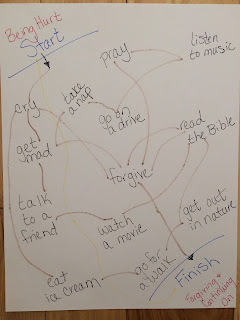 Being Hurt
Start
pray
listen
to music
cry
take
a nap
go on
a drive
get
mad
read
the Bible
forgive
talk
to a
friend
watch
a movie
get out
in nature
eat
ice cream
go for
a walk
Finish
Forgiving +
Continuing
On